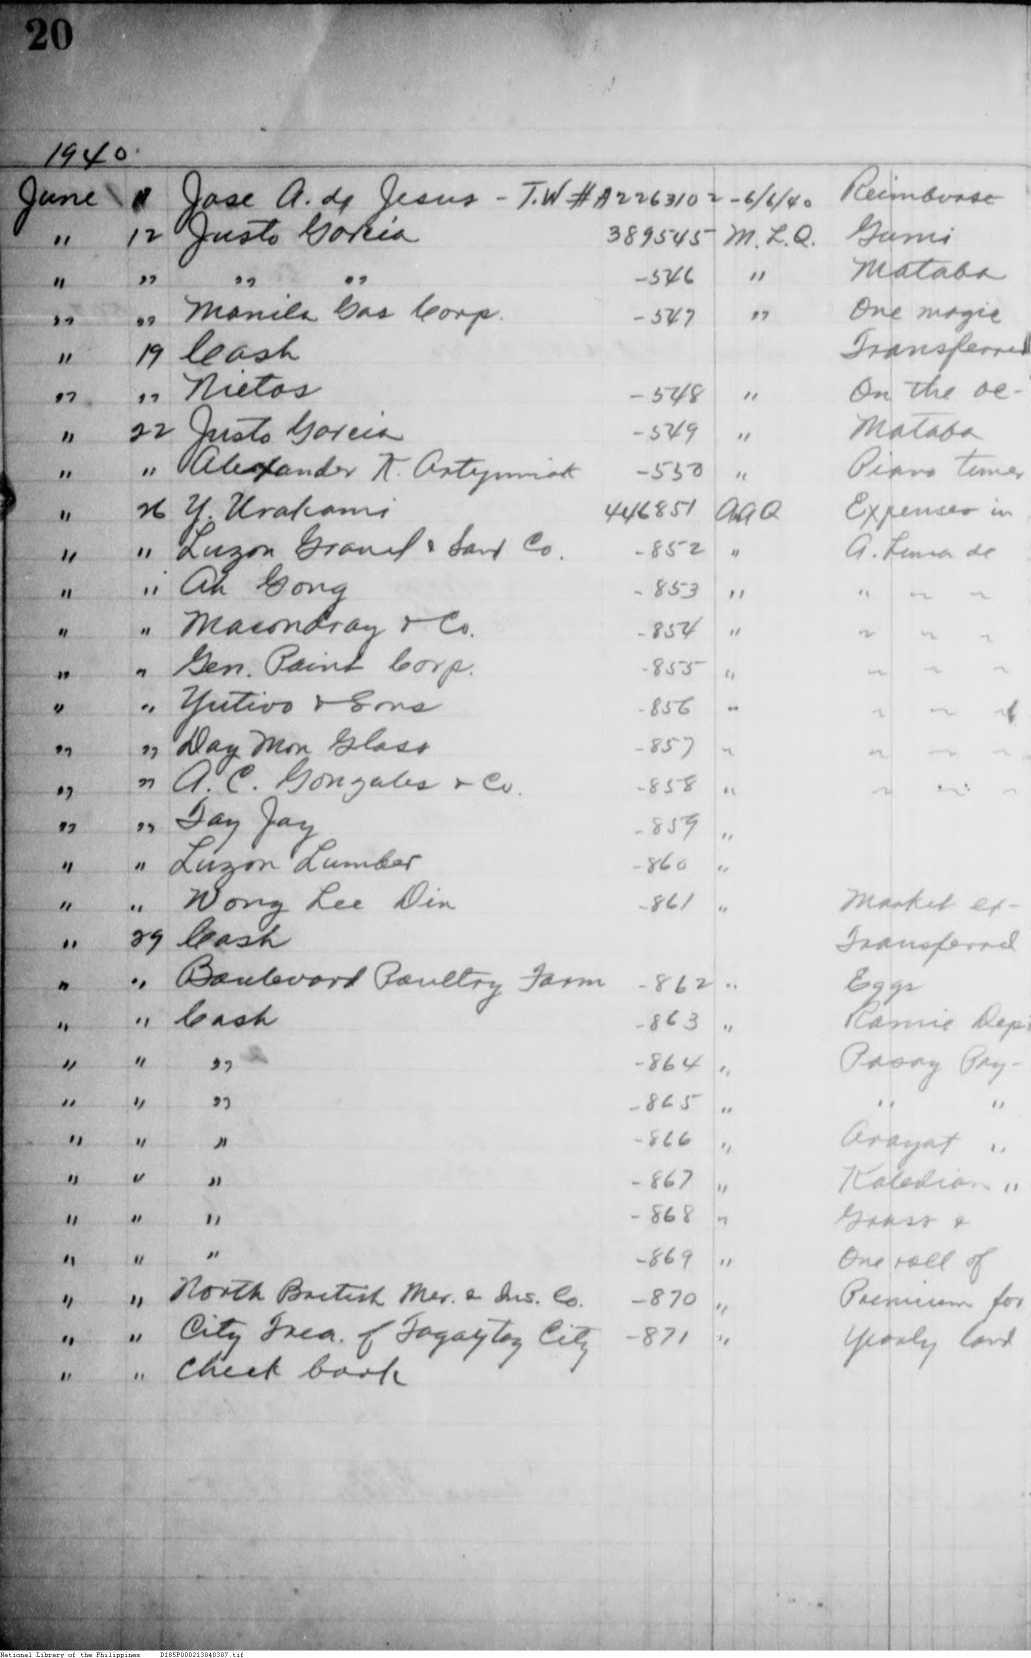 20
1940
June 11 Jose A. de Jesus - T.W # A2263102 - 6/6/40 Reimburse
" 12 Justo Garcia 389545 M.L.Q. Gumi
" " " " -546 " Mataba
" " Manila Gas Corp. -547 " One magic
" 19 Cash Transferred
" " Nietos -548 " On the ac-
" 22 Justo Garcia -549 " Mataba
" " Alexander K. -550 " Piano tuner
" 26 Y. Urakami 446851 AAQ Expenses in
" " Luzon Gravel & Sand Co. -852 " A. de
" " Ah Gong -853 " " " "
" " Macondray & Co. -854 " " " "
" " Gen. Paint Corp. -855 " " " "
" " Yutivo & Sons -856 " " "
" " Day Mon Glass -857 " " " "
" " A. C. Gonzales & Co. -858 " " " "
" " Tay Jay -859 "
" " Luzon Lumber -860 "
" " Wong Lee Din -861 " Market ex-
" 29 Cash Transferred
" " Boulevard Poultry Farm -862 " Eggs
" " Cash -863 " Ramie Dep
" " " -864 " Pasay Pay-
" " " -865 " " "
" " " -866 " Arayat "
" " " -867 " Kaledian "
" " " -868 " Grass &
" " " -869 " One roll of
" " North British Mer. & Ins. Co. -870 " Premium for
" " City Trea. of Tagaytay City -871 " Yearly land
" " Check book
National Library of the Philippines D185P000213040307.tif